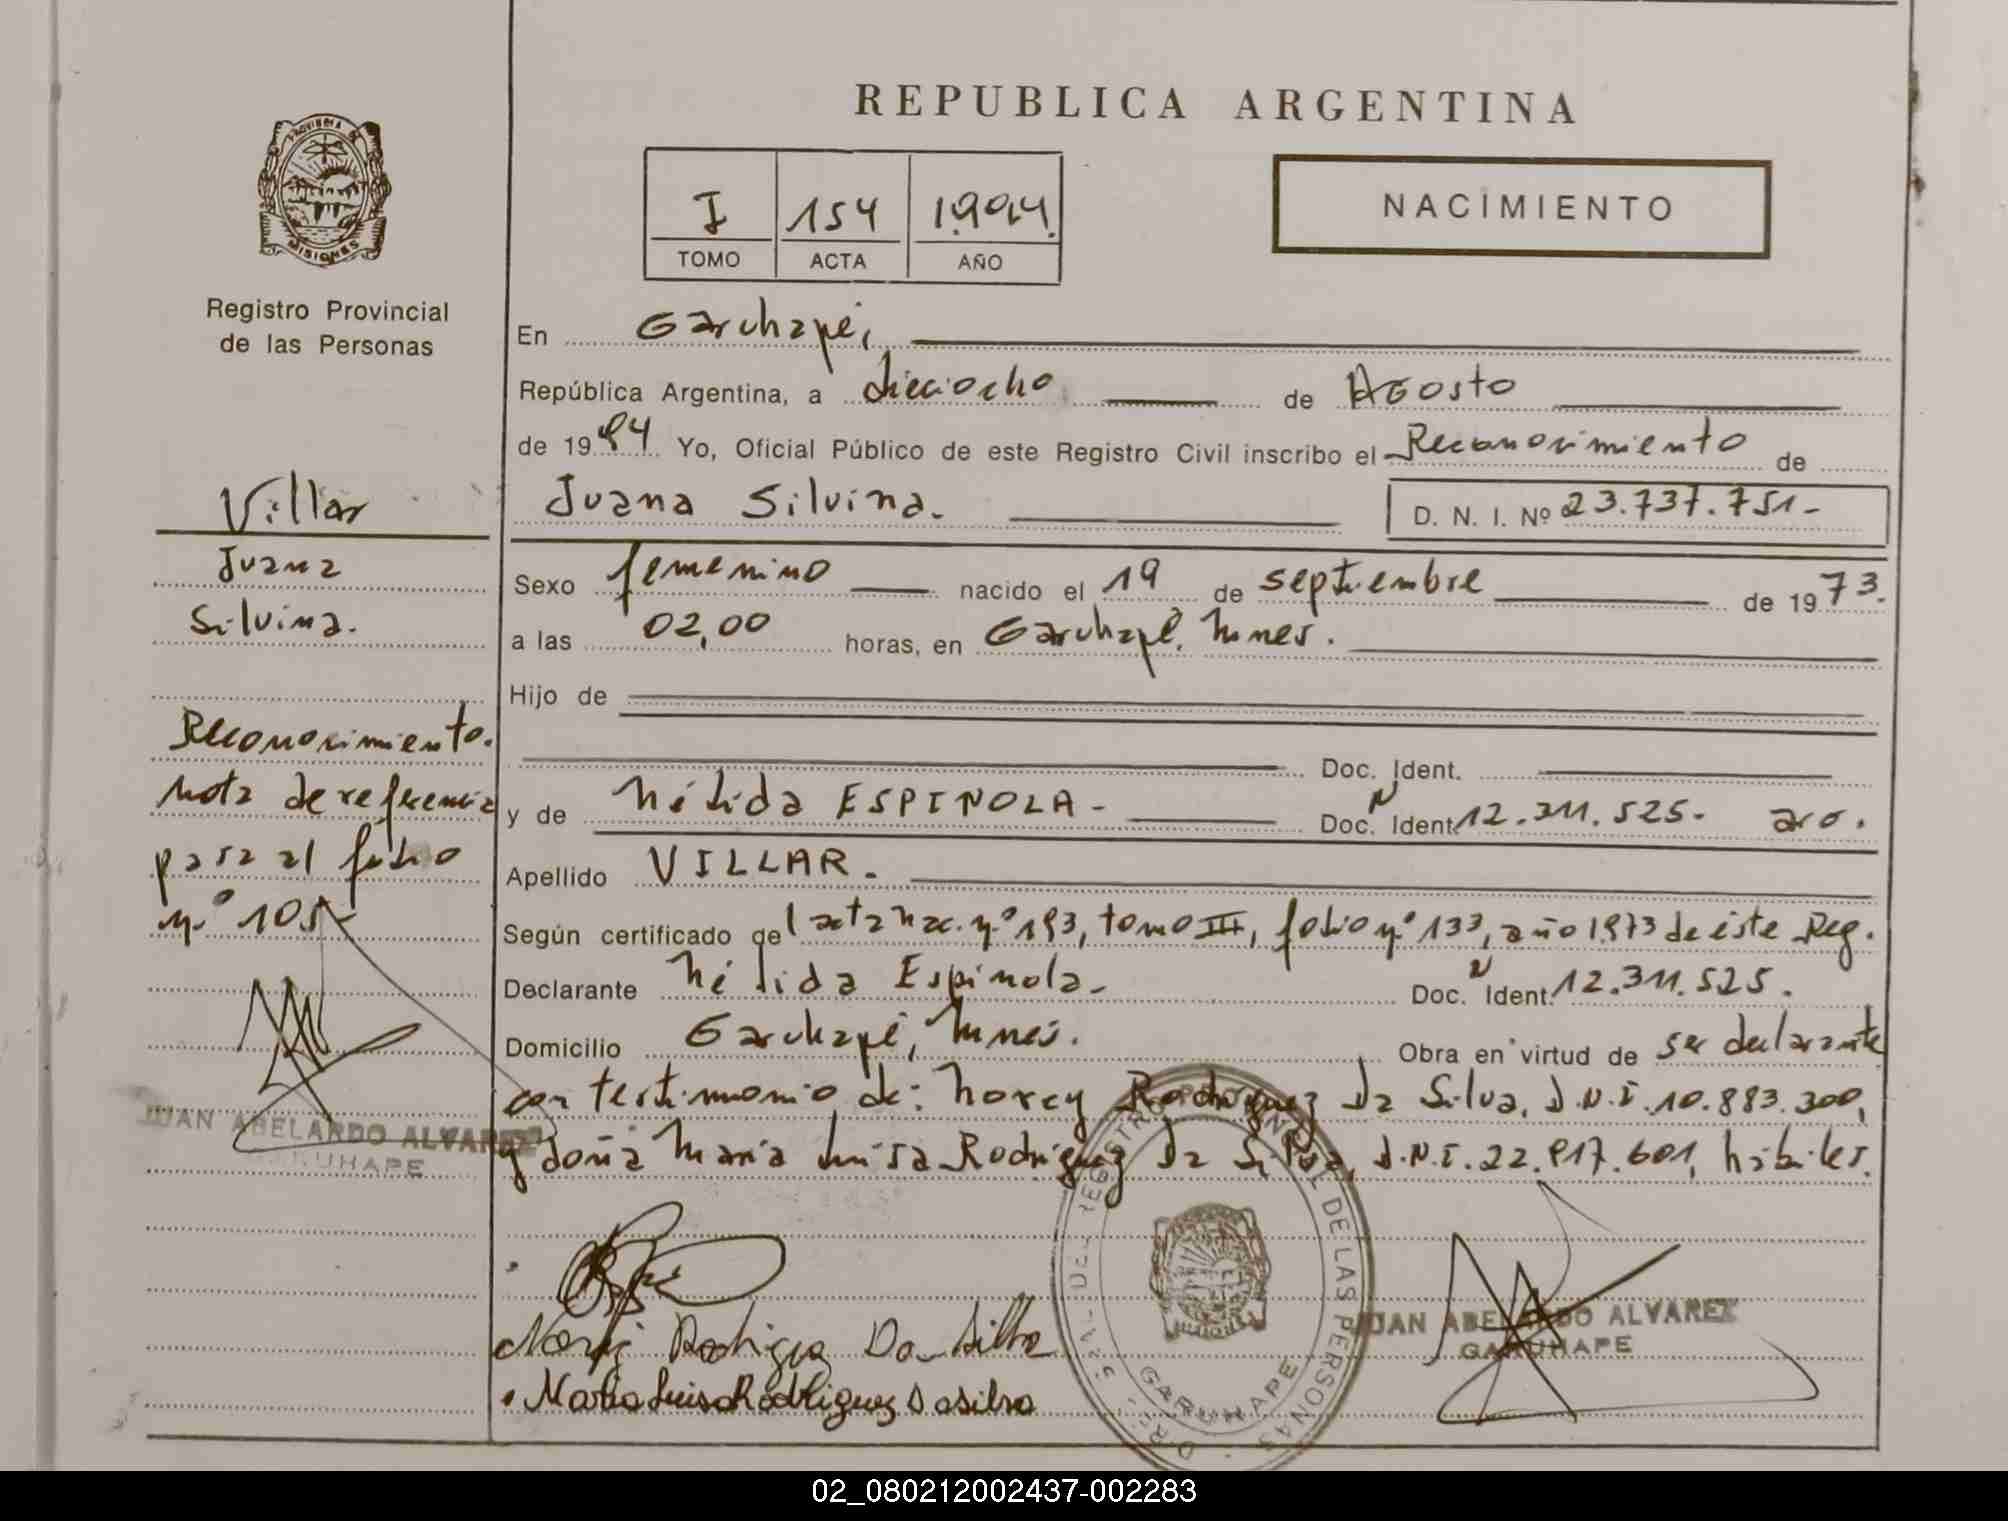 REPUBLICA ARGENTINA
PROVINCIA DE
MISIONES
I 154 1.994.
TOMO ACTA AÑO
NACIMIENTO
Registro Provincial
de las Personas
Villar
Juana
Silvina.
Reconocimiento.
Nota de referencia
pasa al folio
n.º 105
JUAN ABELARDO ALVAREZ
GARUHAPE
En Garuhapé,
República Argentina, a dieciocho de Agosto
de 1994 Yo, Oficial Público de este Registro Civil inscribo el Reconocimiento de
Juana Silvina. D. N. I. Nº 23.737.751-
Sexo femenino nacido el 19 de septiembre de 1973.
a las 02,00 horas, en Garuhapé, Mnes.
Hijo de
Doc. Ident.
y de Nélida ESPINOLA- Doc. N Ident. 12.311.525. aro.
Apellido VILLAR.
Según certificado de l acta nac. n.º 193, tomo III, folio nº 133, año 1973 de éste Reg.
Declarante Nélida Espinola- Doc. N Ident. 12.311.525.
Domicilio Garuhapé, Mnes. Obra en virtud de ser declarante
con testimonio de: Norey Rodriguez Da Silva, D.N.I. 10.883.300,
y doña Maria Luisa Rodriguez Da Silva, D.N.I. 22.917.601, hábiles.
Rodriguez Da Silva
Maria Luisa Rodriguez Dasilva
DEL REGISTRO PROVINCIAL DE LAS PERSONAS
GARUHAPE
JUAN ABELARDO ALVAREZ
GARUHAPE
02_080212002437-002283